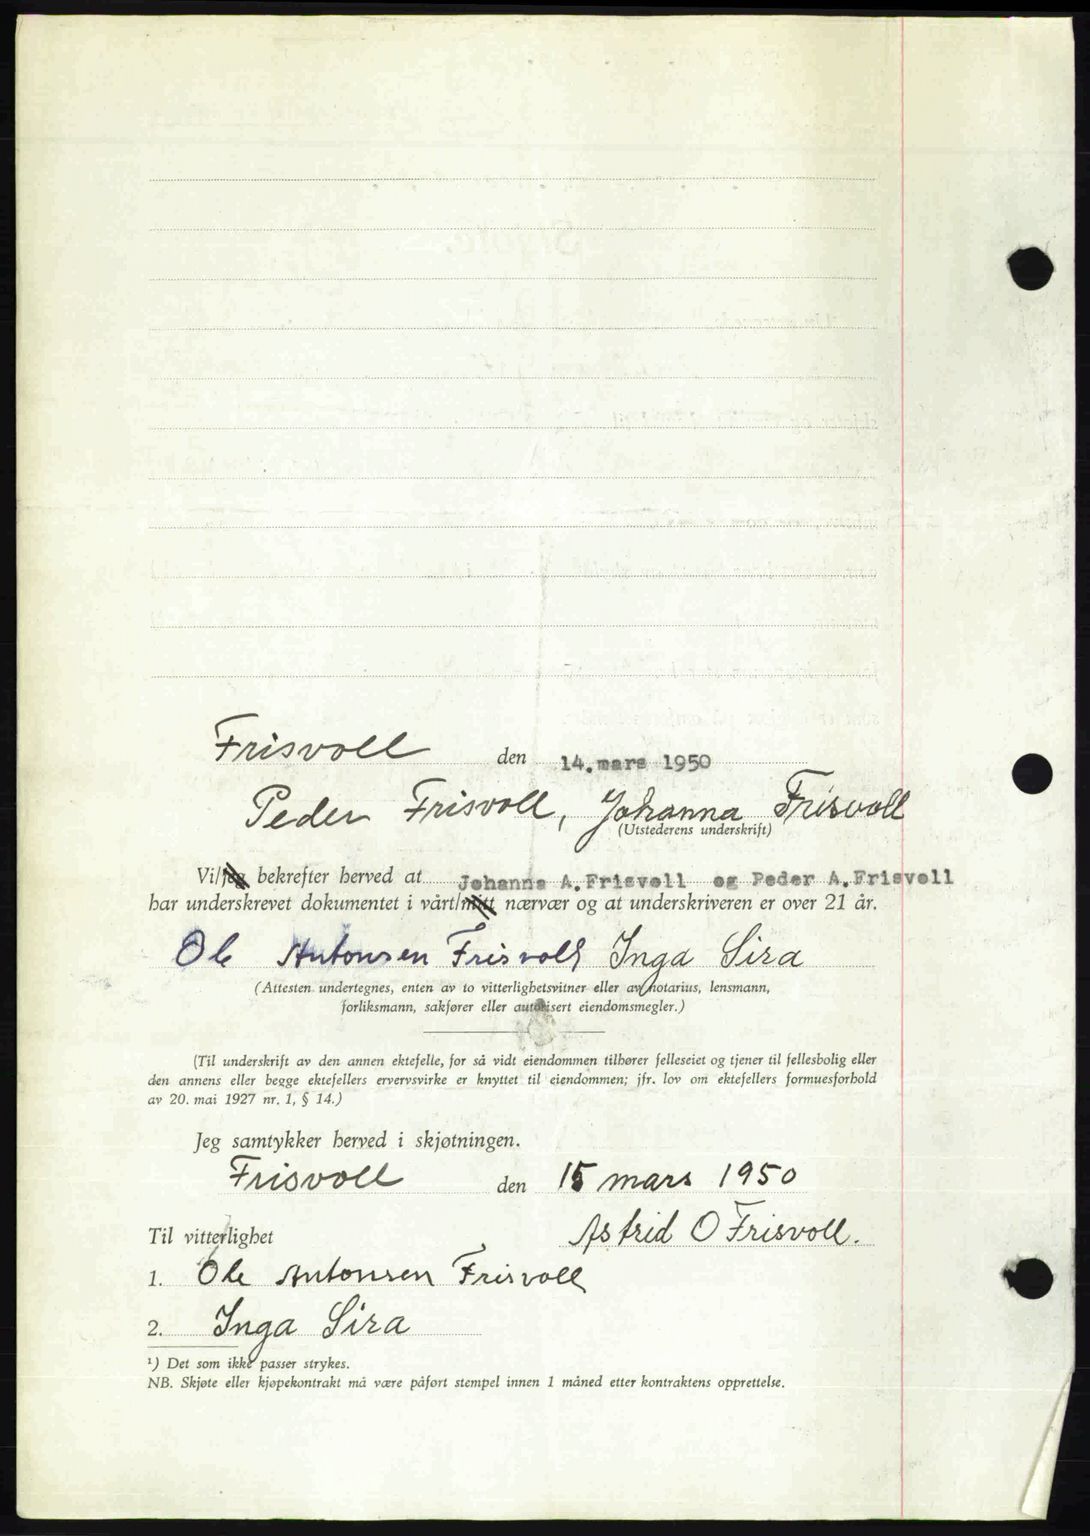 Frisvoll den 14. mars 1950
Peder Frisvoll, Johanna Frisvoll
(Utstederens underskrift)
Vi/jeg bekrefter herved at Johanna A. Frisvoll og Peder A. Frisvoll
har underskrevet dokumentet i vårt/mitt nærvær og at underskriveren er over 21 år.
Ole Antonsen Frisvoll Inga Sira
(Attesten undertegnes, enten av to vitterlighetsvitner eller av notarius, lensmann,
forliksmann, sakfører eller autorisert eiendomsmegler.)
(Til underskrift av den annen ektefelle, for så vidt eiendommen tilhører felleseiet og tjener til fellesbolig eller
den annens eller begge ektefellers ervervsvirke er knyttet til eiendommen; jfr. lov om ektefellers formuesforhold
av 20. mai 1927 nr. 1, § 14.)
Jeg samtykker herved i skjøtningen.
Frisvoll den 15 mars 1950
Til vitterlighet Astrid O Frisvoll.
1. Ole Antonsen Frisvoll
2. Inga Sira
¹) Det som ikke passer strykes.
NB. Skjøte eller kjøpekontrakt må være påført stempel innen 1 måned etter kontraktens opprettelse.